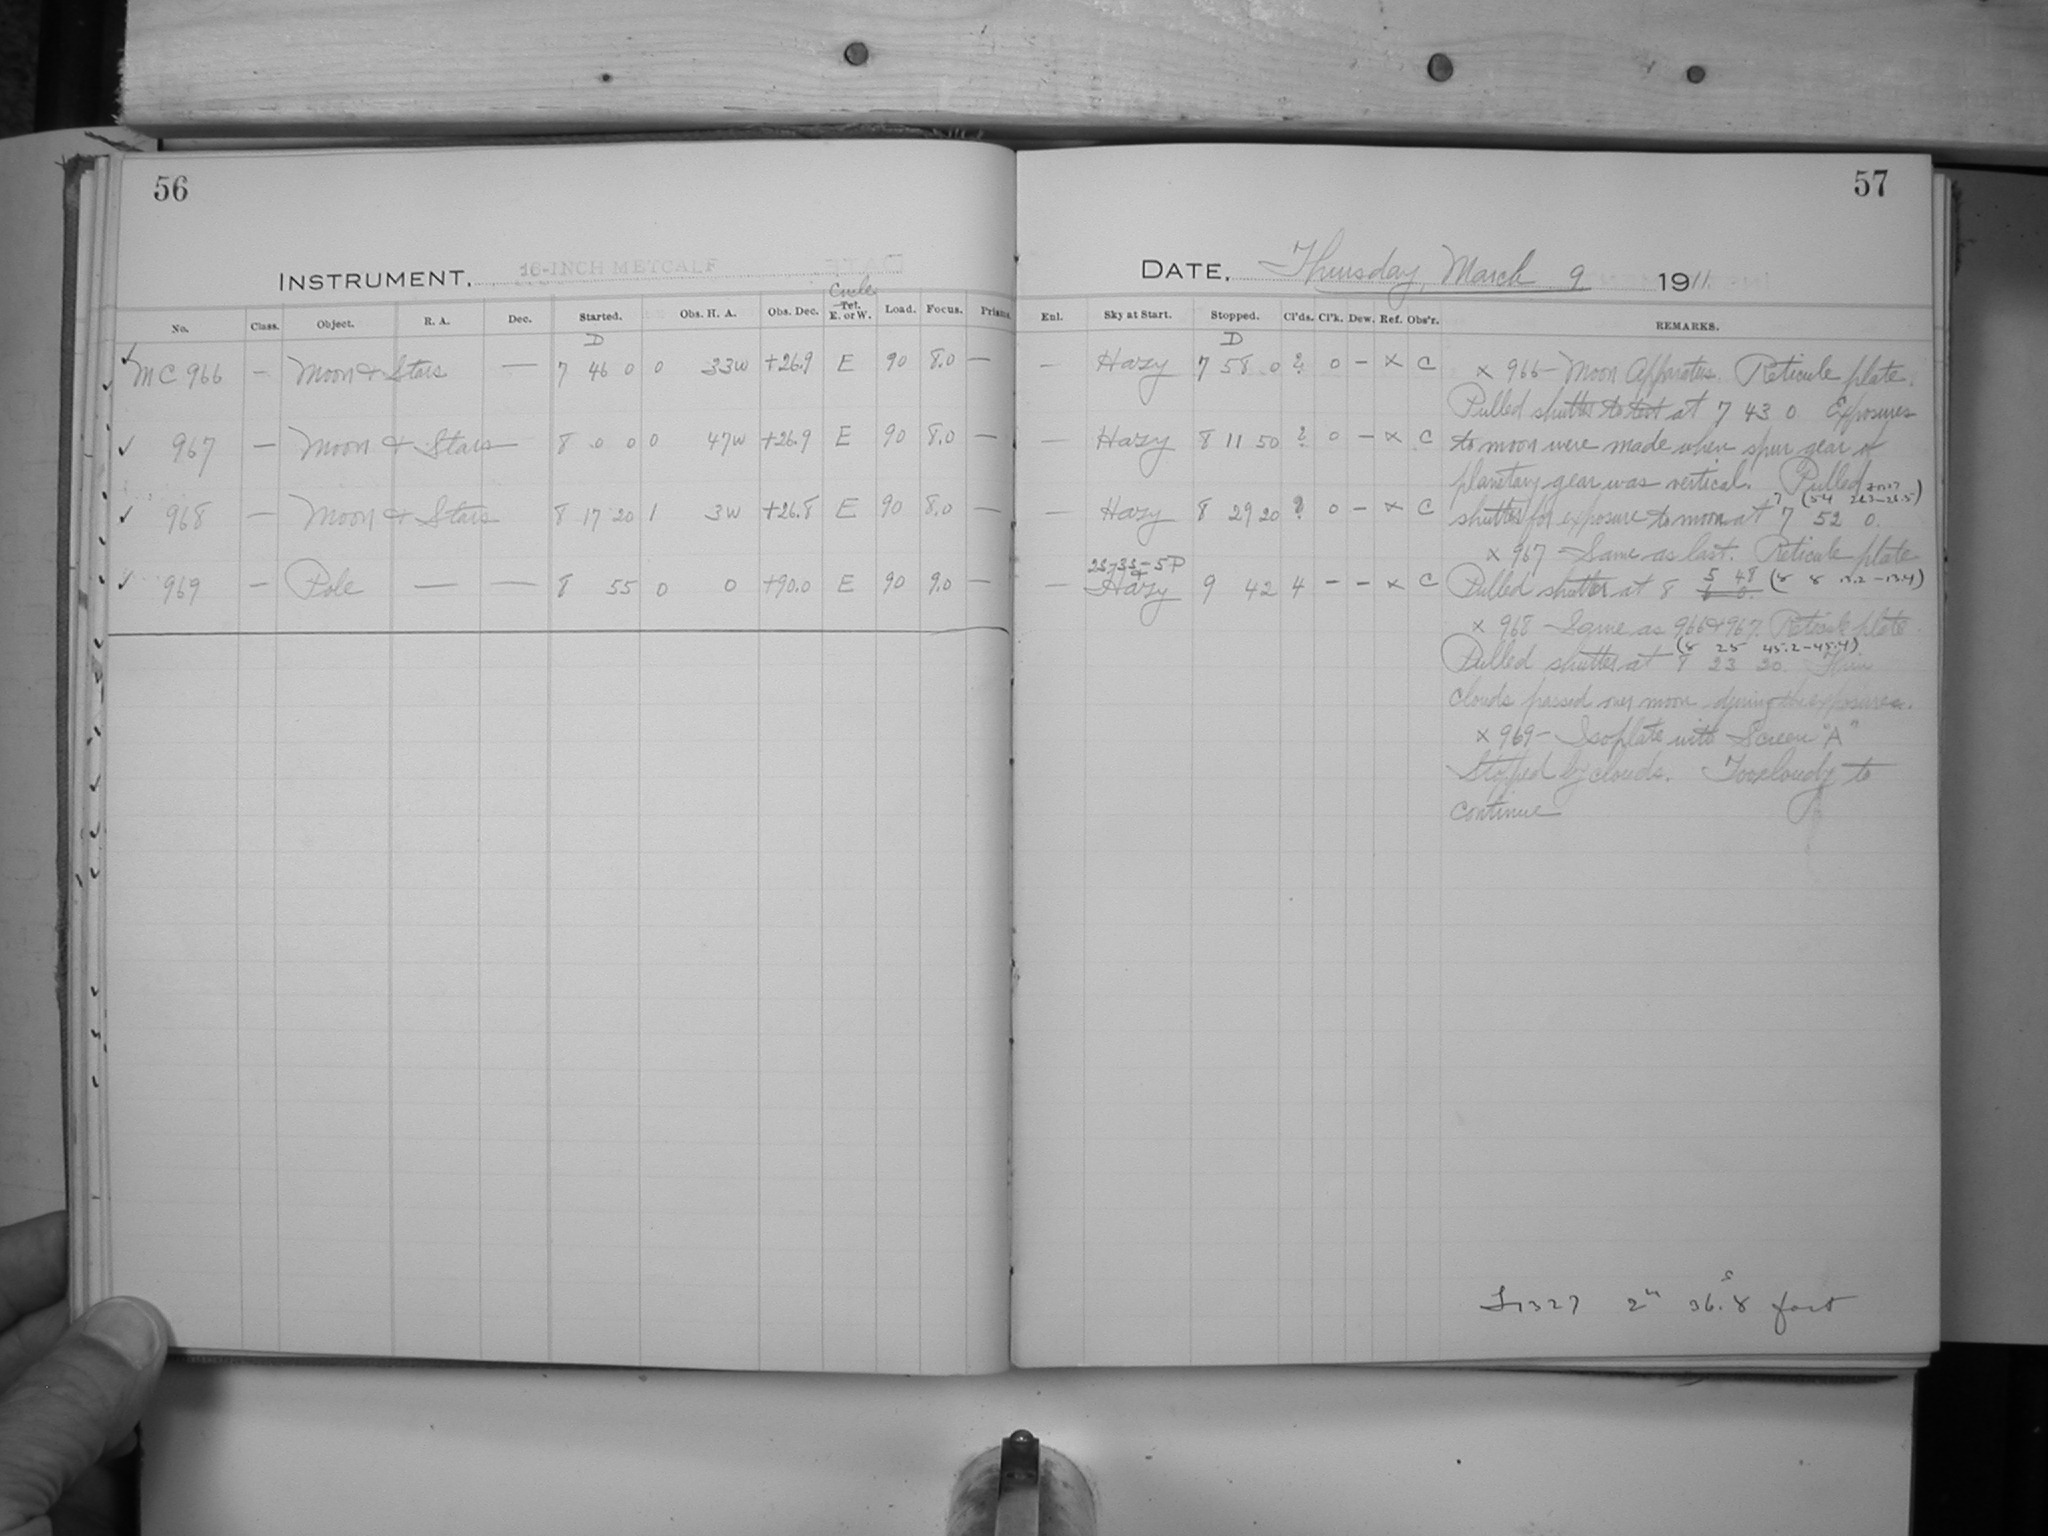 56
INSTRUMENT. 16-INCH METCALF
Circle
No. Class. Object. R. A. Dec. Started. Obs. H. A. Obs. Dec. Tel. E. or W. Load. Focus. Prisms.
D
MC 966 — Moon & Stars — 7 46 0 0 33W +26.9 E 90 8.0 —
967 — Moon & Stars — 8 0 0 0 47W +26.9 E 90 8.0 —
968 — Moon & Stars 8 17 20 1 3W +26.8 E 90 8.0 —
969 — Pole — — 8 55 0 0 +90.0 E 90 9.0 —
57
DATE. Thursday, March 9 1911.
Enl. Sky at Start. Stopped. Cl'ds. Cl'k. Dew. Ref. Obs'r. REMARKS.
D
— Hazy 7 58 0 ? 0 — x C
— Hazy 8 11 50 ? 0 — x C
— Hazy 8 29 20 ? 0 — x C
— Hazy 9 42 4 — — x C
x 966 — Moon Apparatus. Reticule plate.
Pulled shutter to test at 7 43 0. Exposures
to moon were made when spur gear of
planetary gear was vertical. Pulled
shutter for exposure to moon at 7 52 0.
x 967 — Same as last. Reticule plate
Pulled shutter at 8 5 48 (8 8 13.2—13.4)
x 968 — Same as 966 & 967. Reticule plate.
(8 25 45.2—45.4)
Pulled shutter at 8 23 20. Thin
clouds passed over moon during the exposures.
x 969 — Isoplate with Screen "A"
Stopped by clouds. Too cloudy to
continue
1327 2m 36.8s fast